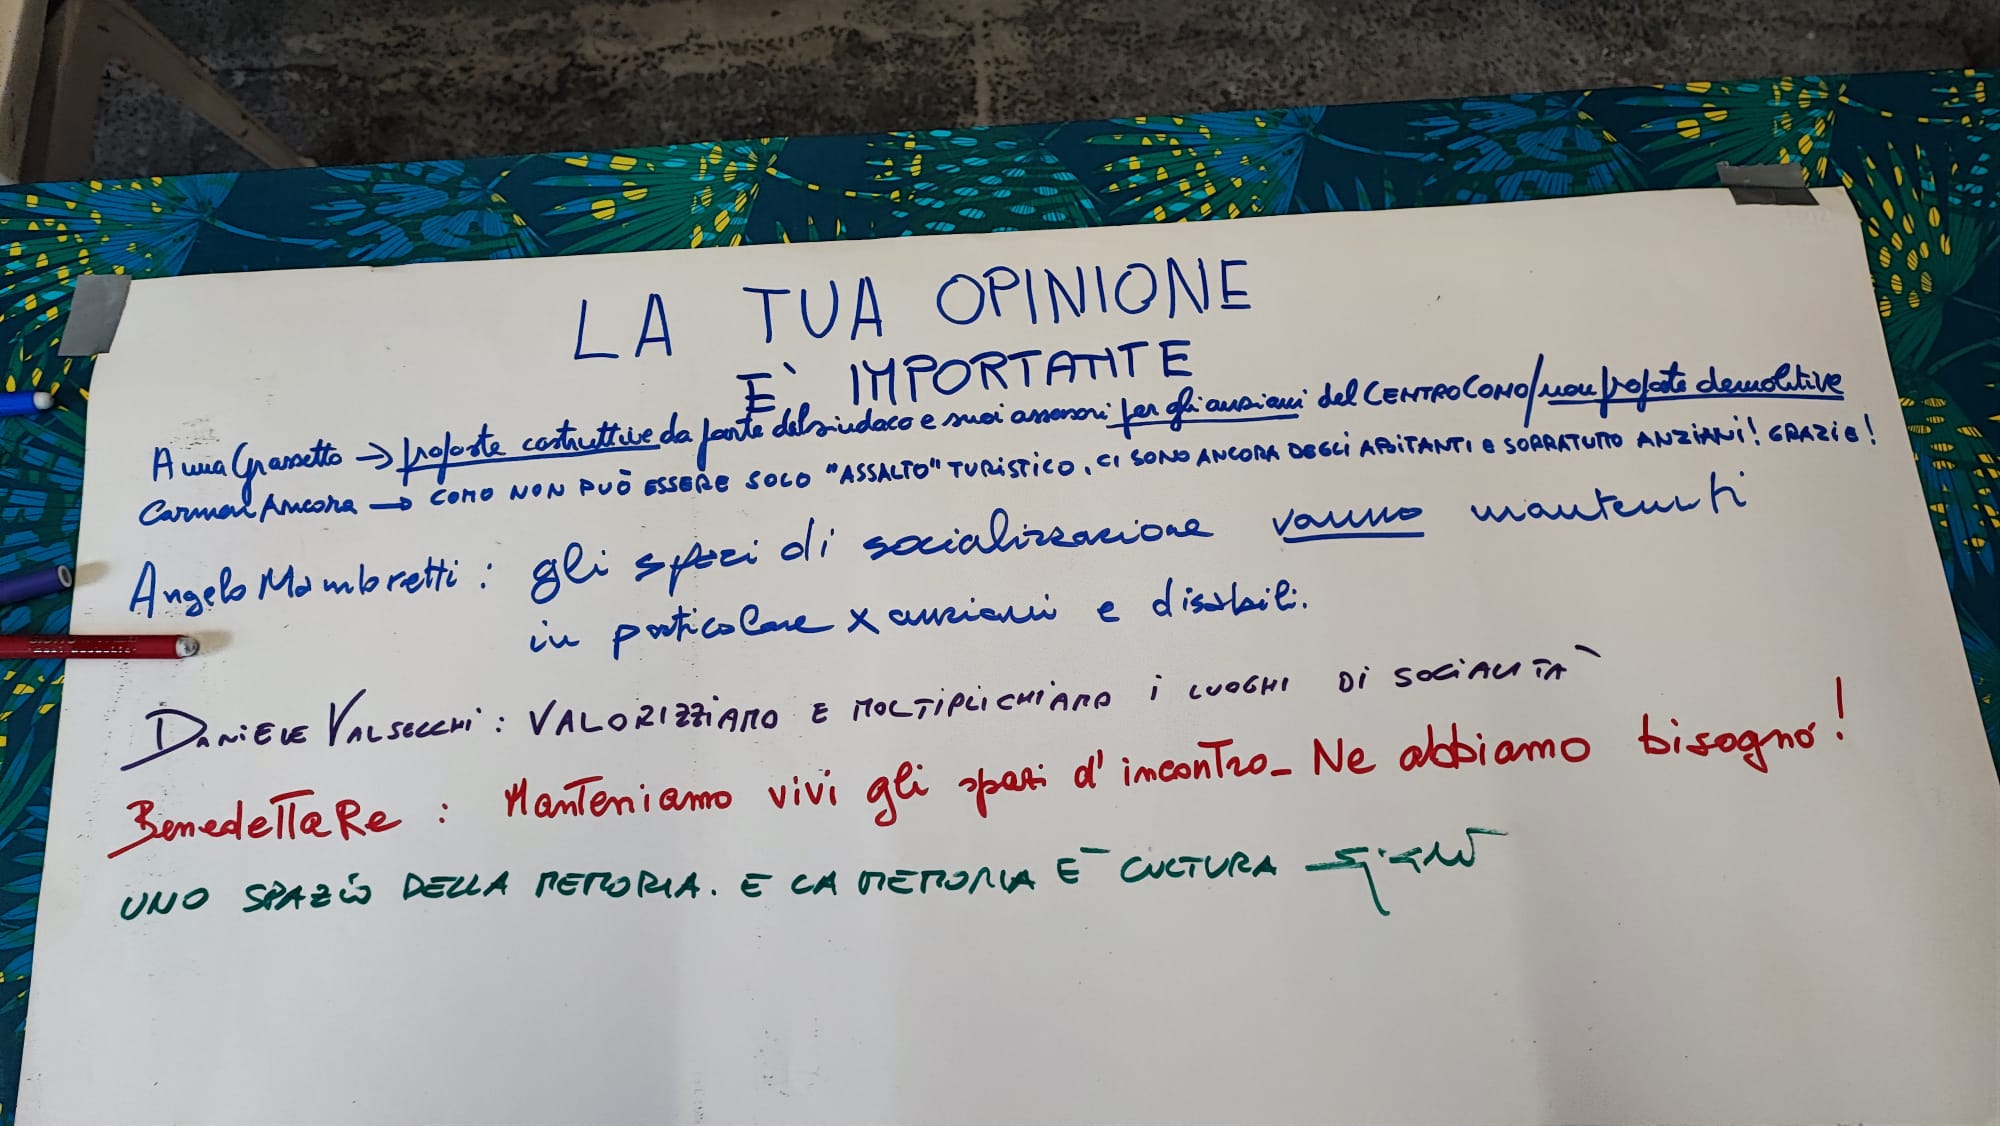 LA TUA OPINIONE
E' IMPORTANTE
Anna Grassetto → proposte costruttive da parte del sindaco e suoi assessori per gli anziani del CENTRO COMO/non proposte demolitive
Carmen Ancora → COMO NON PUÒ ESSERE SOLO "ASSALTO" TURISTICO, CI SONO ANCORA DEGLI ABITANTI E SOPRATUTTO ANZIANI! GRAZIE!
Angelo Mambretti: gli spazi di socializzazione vanno mantenuti
in particolare x anziani e disabili.
DANIELE VALSECCHI: VALORIZZIAMO E MOLTIPLICHIAMO I LUOGHI DI SOCIALITA'
Benedetta Re: Manteniamo vivi gli spazi d'incontro_ Ne abbiamo bisogno!
UNO SPAZIO DELLA MEMORIA. E LA MEMORIA E' CULTURA